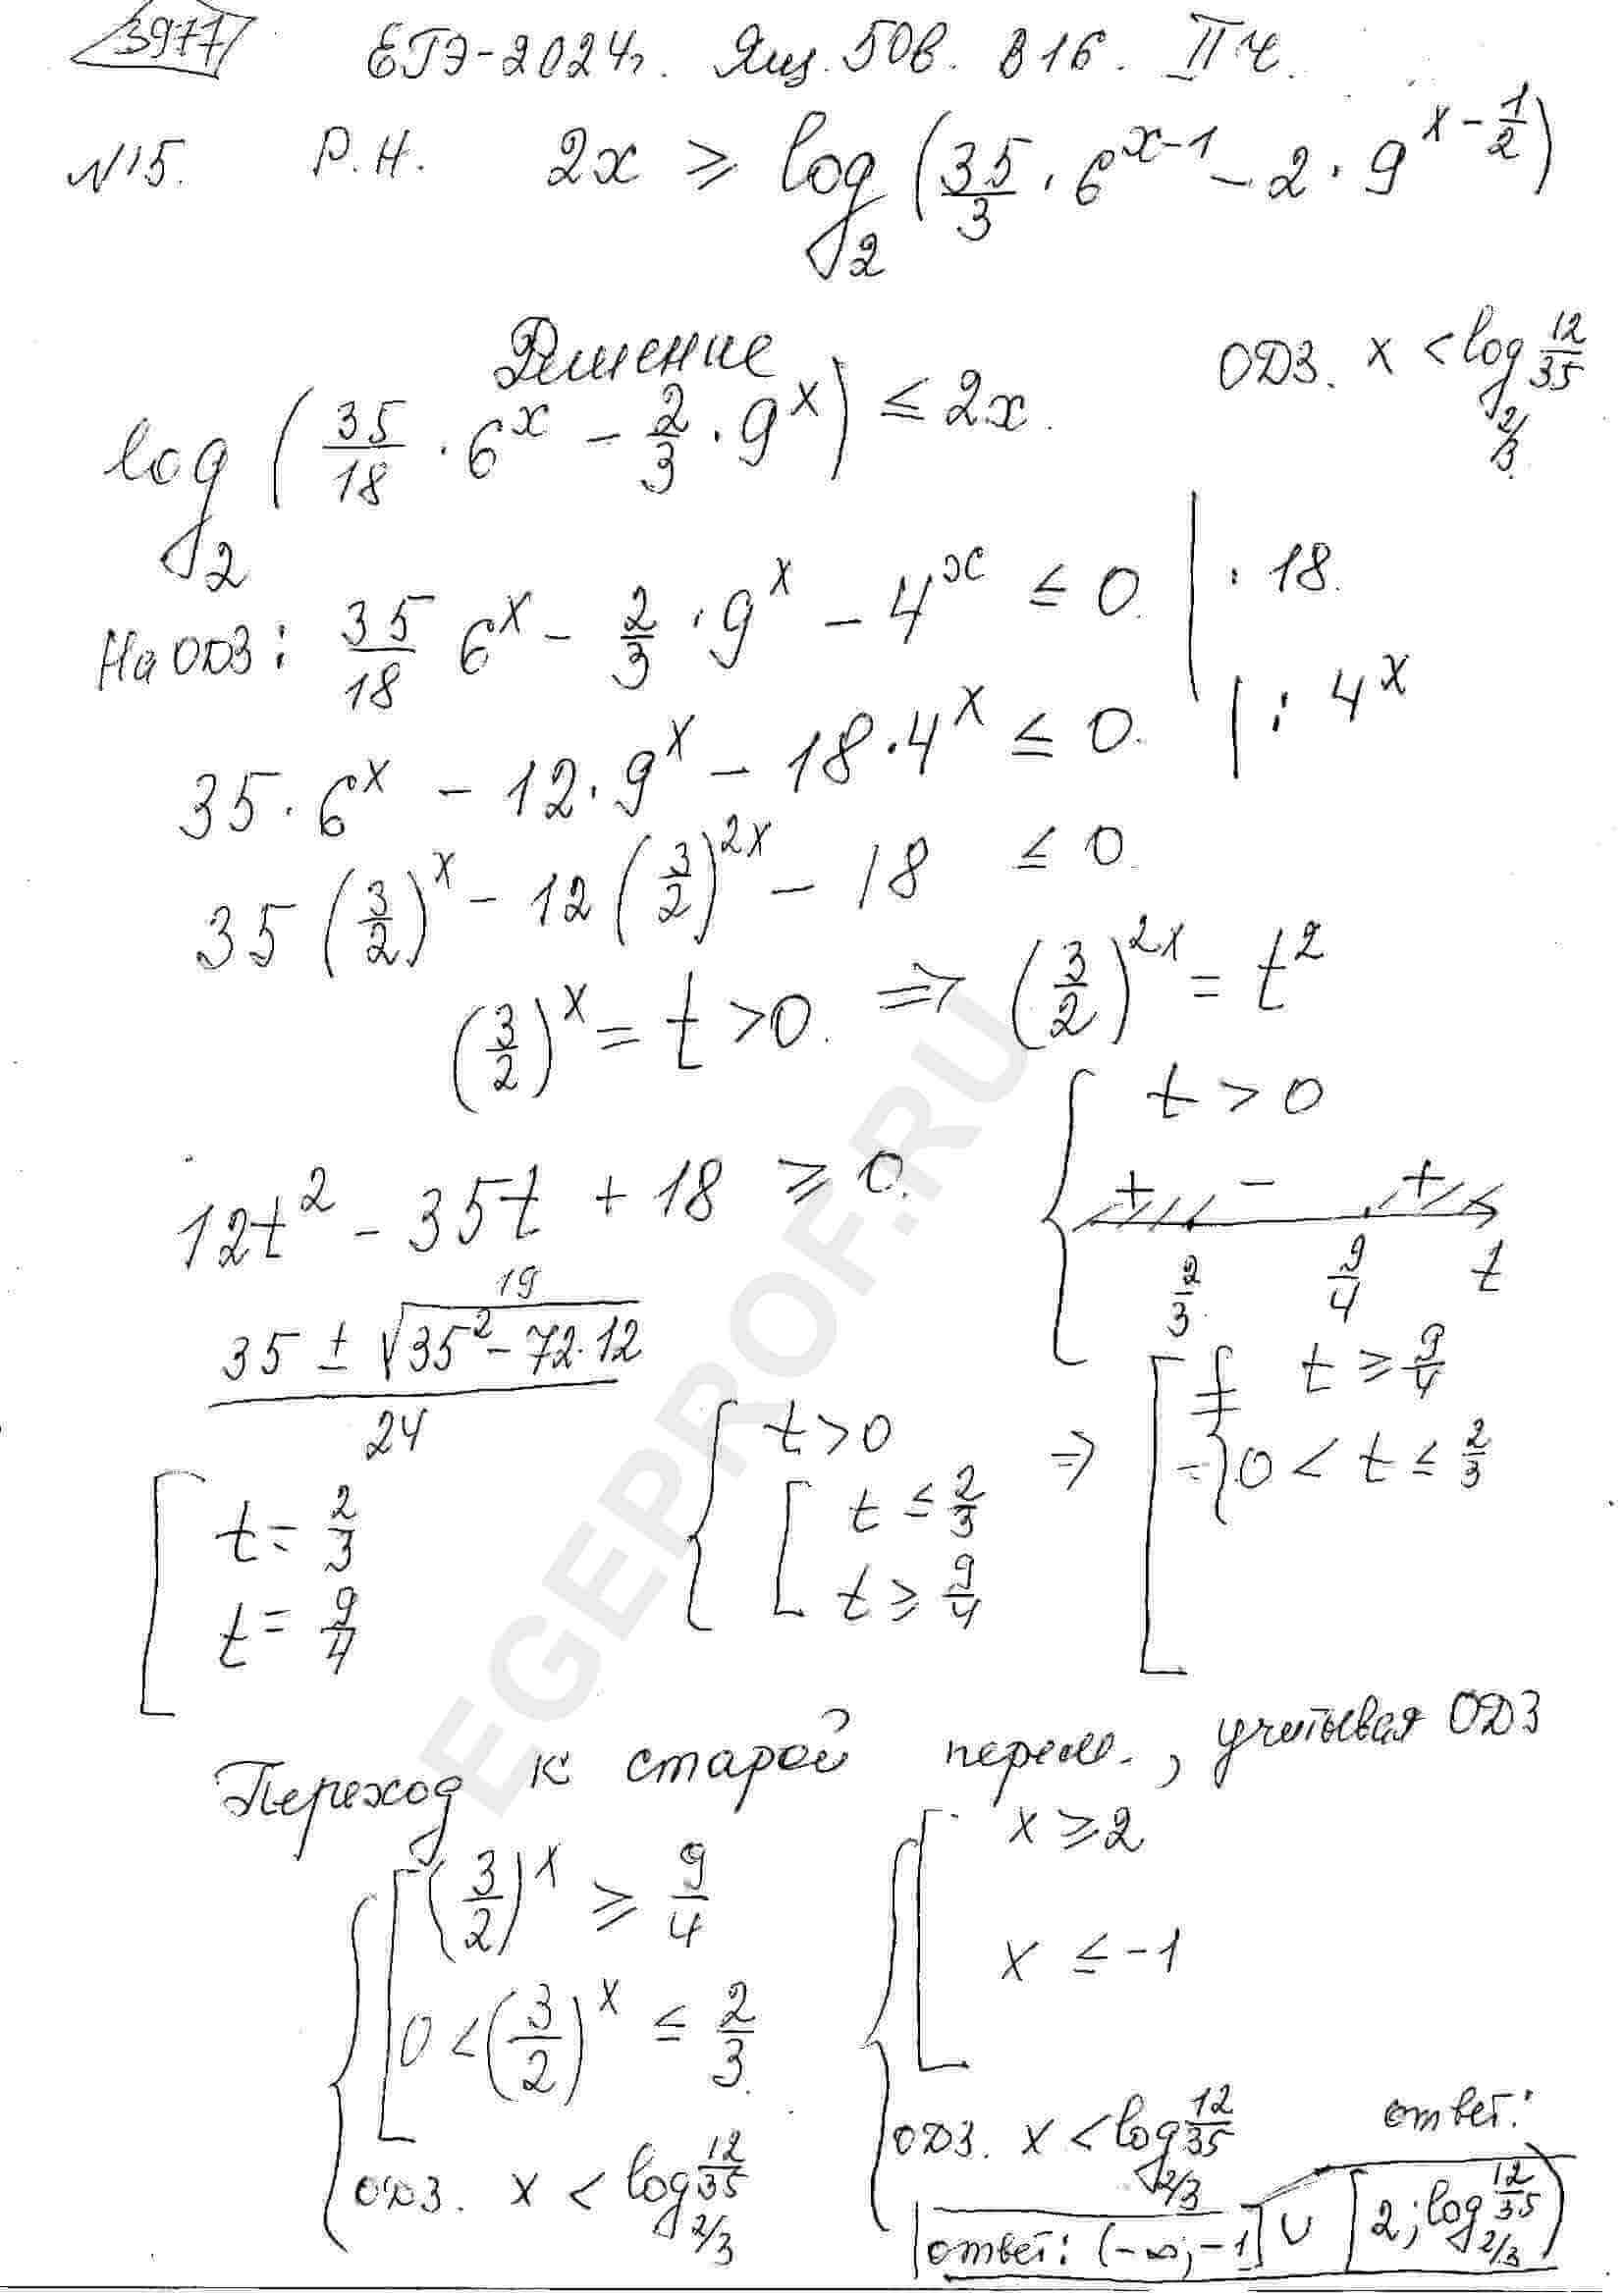 3977 ЕГЭ-2024г. Ящ. 50в. В 16. II ч.
N15. Р.Н. 2x ≥ log_2 (35/3 · 6^(x-1) - 2 · 9^(x - 1/2))
Решение
ОДЗ. x < log_(2/3) 12/35
log_2 (35/18 · 6^x - 2/3 · 9^x) ≤ 2x.
На ОДЗ: 35/18 6^x - 2/3 · 9^x - 4^x ≤ 0. | · 18.
35 · 6^x - 12 · 9^x - 18 · 4^x ≤ 0. | : 4^x
35 (3/2)^x - 12 (3/2)^(2x) - 18 ≤ 0.
(3/2)^x = t > 0. ⇒ (3/2)^(2x) = t^2
12t^2 - 35t + 18 ≥ 0.
19
35 ± √(35^2 - 72·12)
24
[ t = 2/3
t = 9/4
{ t > 0
+ - +
2/3. 9/4 t
{ t > 0
[ t ≤ 2/3
t ≥ 9/4
⇒ [ t ≥ 9/4
0 < t ≤ 2/3
Переход к старой перем., учитывая ОДЗ
{ [ (3/2)^x ≥ 9/4
0 < (3/2)^x ≤ 2/3.
ОДЗ. x < log_(2/3) 12/35
{ [ x ≥ 2
x ≤ -1
ОДЗ. x < log_(2/3) 12/35
ответ:
ответ: (-∞; -1] ∪ [2; log_(2/3) 12/35)
EGEPROF.RU